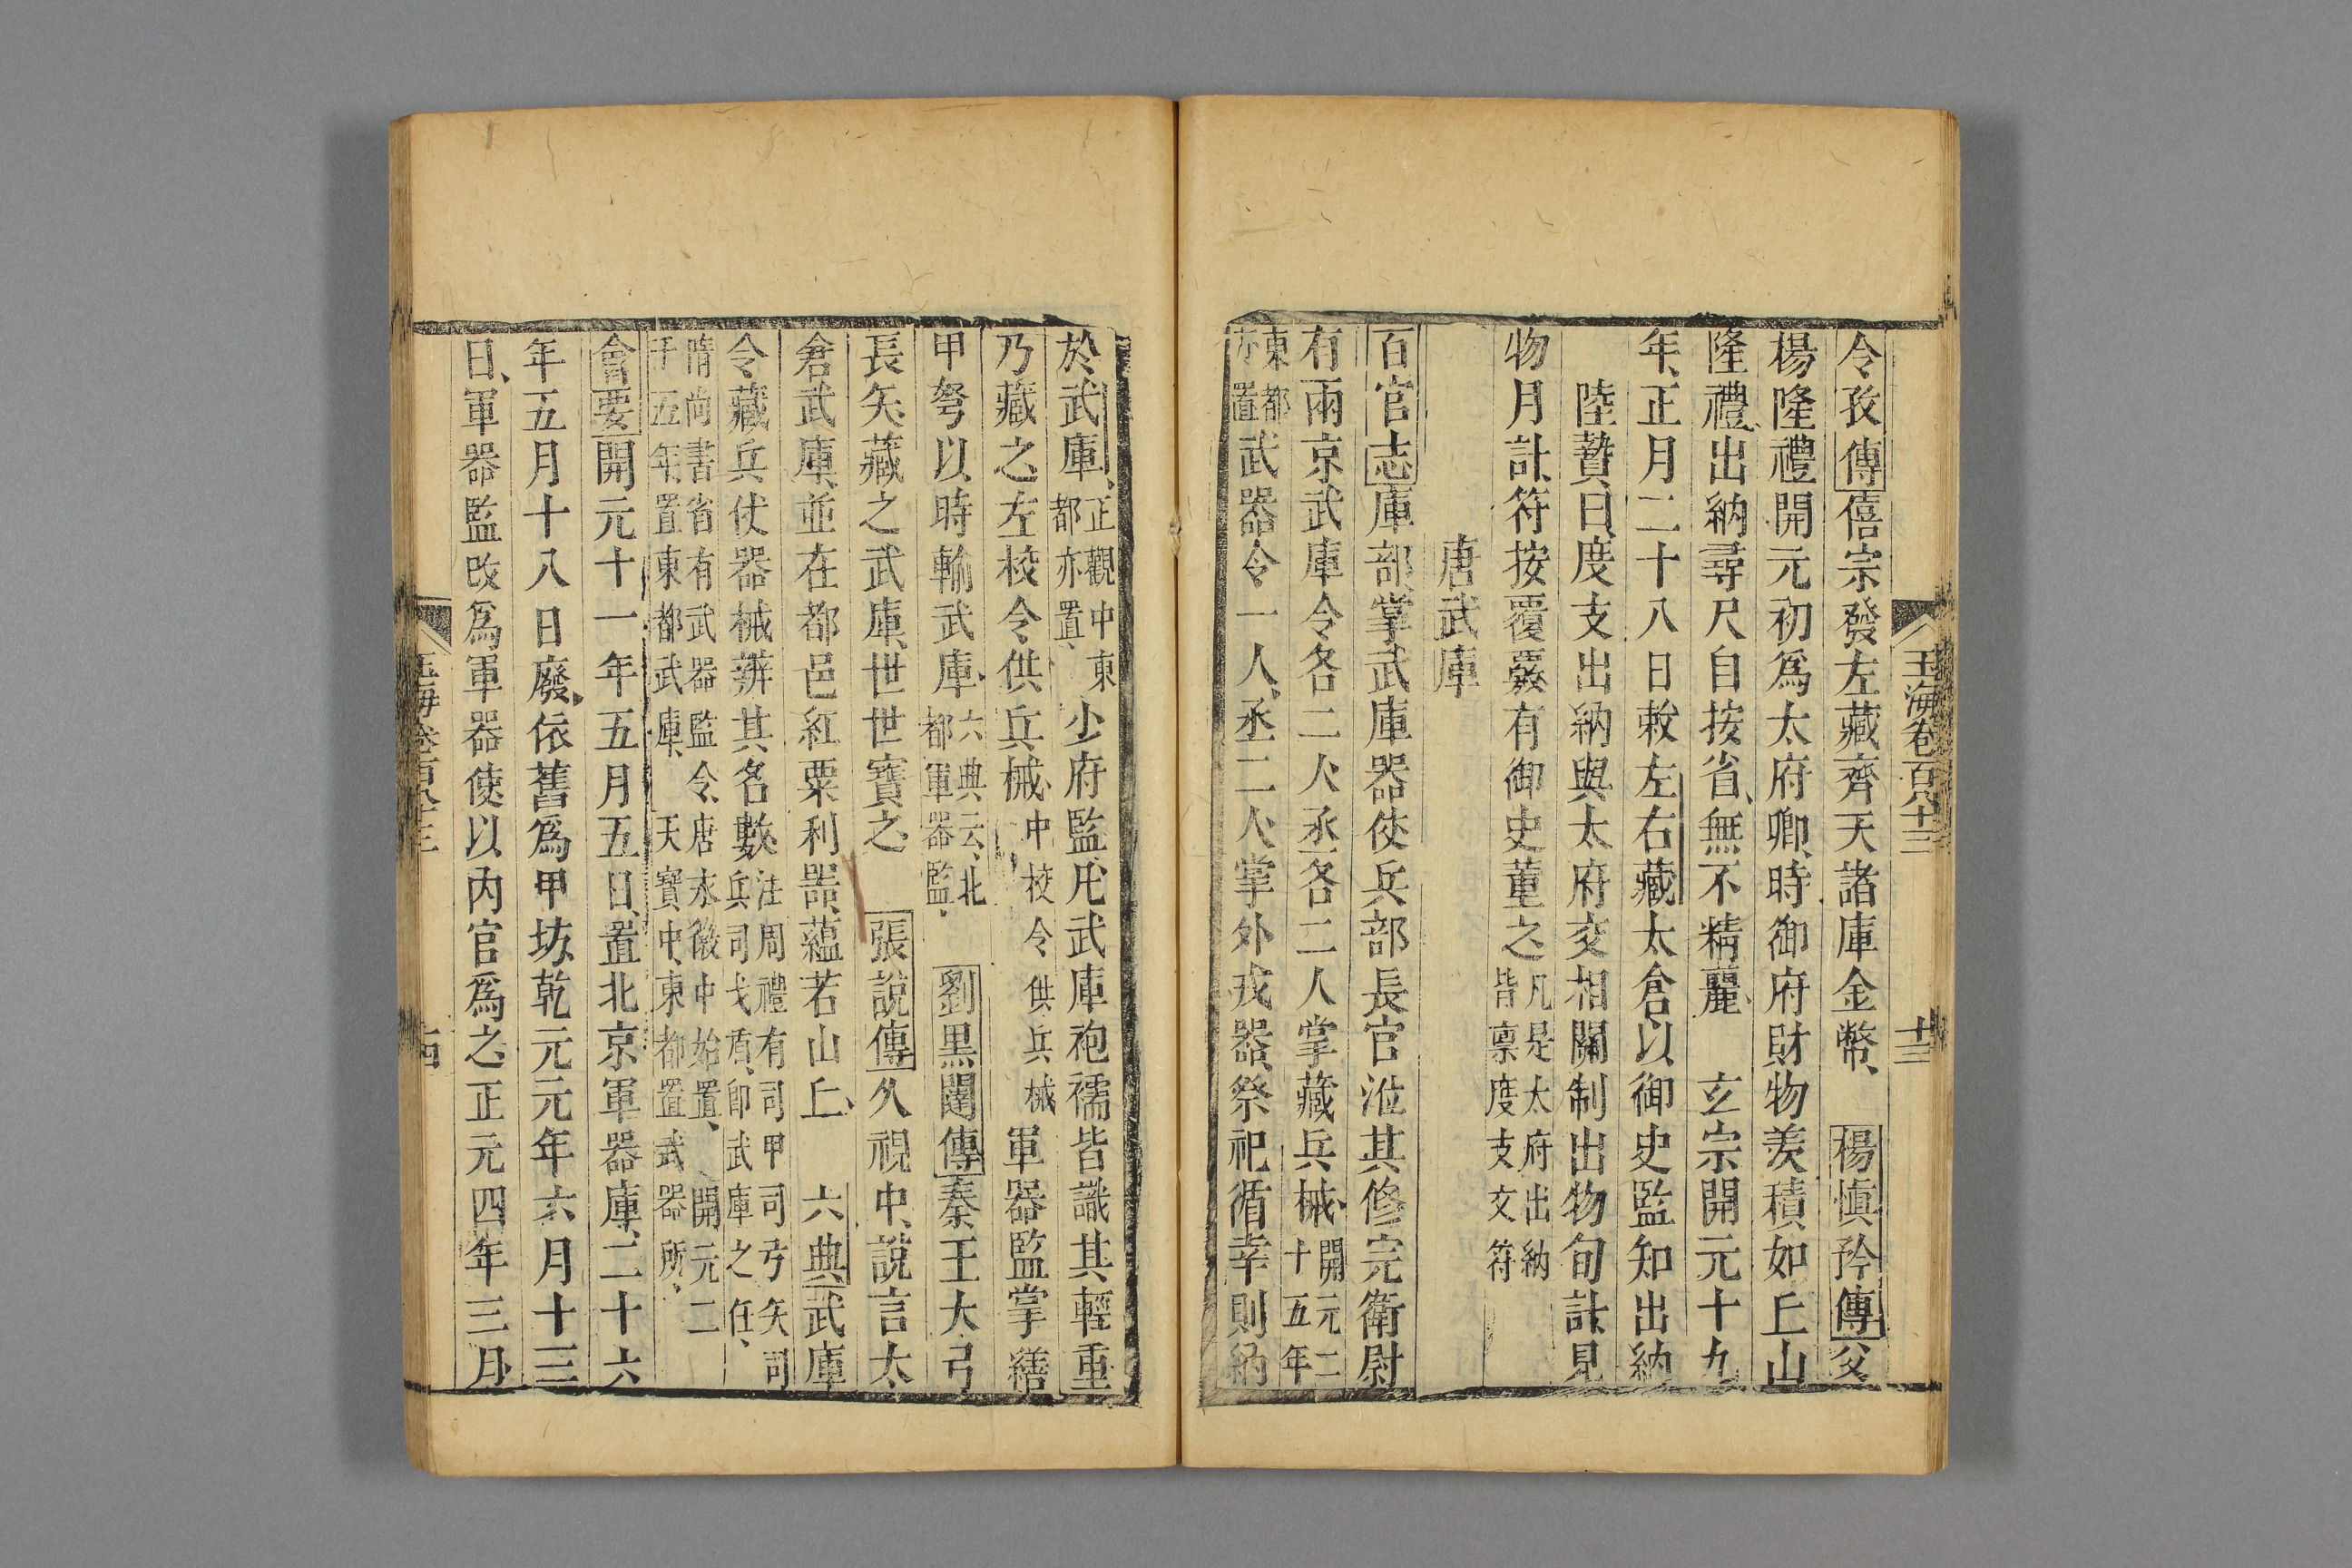 玉海卷百八十三
十三
令孜傳僖宗發左藏齊天諸庫金幣、楊慎矜傳父
楊隆禮開元初爲太府卿、時御府財物羨積、如丘山
隆禮出納尋尺自按省、無不精麗、玄宗開元十九
年、正月二十八日敕左右藏太倉以御史監知出納
陸贄曰、度支出納與太府交相關制出物旬計、見
物月計、符按覆覈有御史董之凡是太府出納皆禀度支文符
唐武庫
百官志庫部、掌武庫器仗兵部長官涖其修完衛尉
有兩京武庫令各二人丞各二人掌藏兵械、開元二十五年
東都亦置武器令一人、丞二人掌外戎器、祭祀循幸則納
於武庫、正觀中東都亦置、少府監、凡武庫袍襦皆識其輕重
乃藏之左校令、供兵械、中校令供兵械軍器監掌繕
甲弩以時輸武庫、六典云、北都軍器監、劉黑闥傳秦王大弓
長矢藏之武庫、世世寶之張說傳久視中、說言太
倉武庫、並在都邑紅粟利器、蘊若山丘、六典武庫
令藏兵仗器械辨其名數、注周禮有司甲司弓矢司兵司戈盾、卽武庫之任、
隋尚書省有武器監令、唐永徽中始置、開元二十五年、置東都武庫、天寶中、東都置武器所、
會要開元十一年五月五日、置北京軍器庫、二十六
年五月十八日廢、依舊爲甲坊、乾元元年六月十三
日、軍器監改爲軍器使、以內官爲之正元四年三月
十四